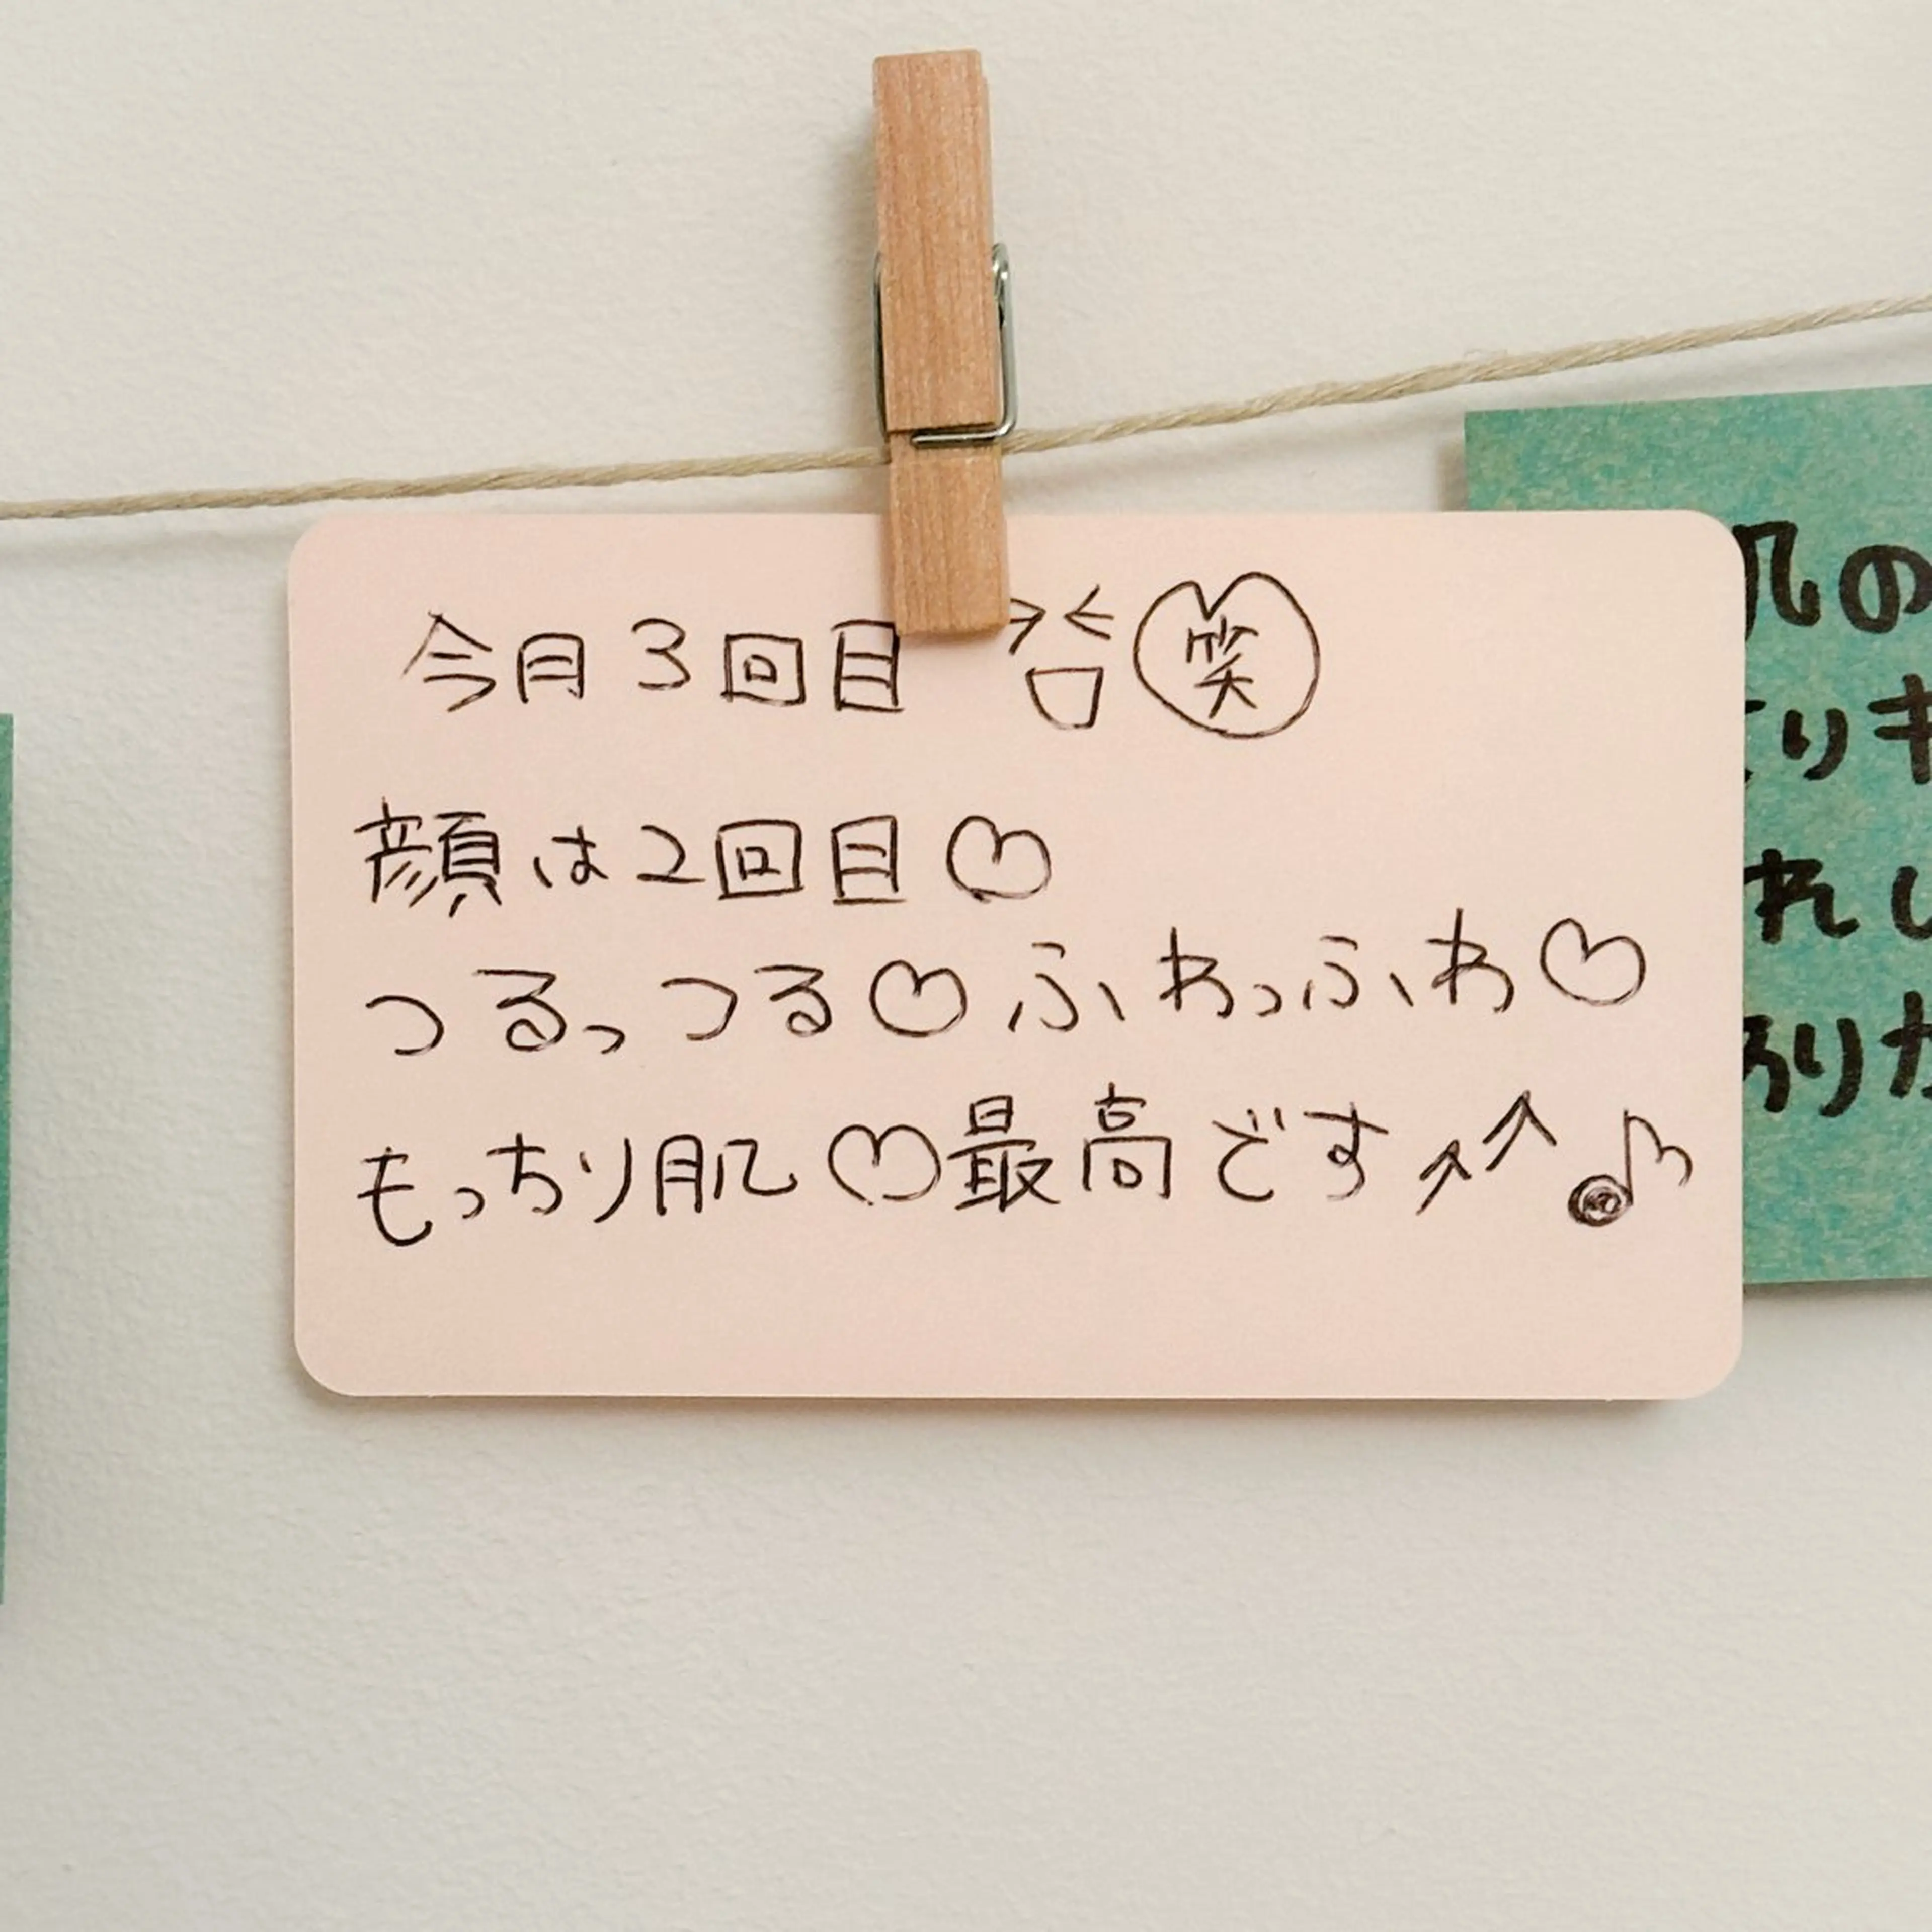 今月3回目 ><笑
顔は2回目♡
つるっつる♡ふわっふわ♡
もっちり肌♡最高です↗↗♪
肌の
りキ
れし
ありが